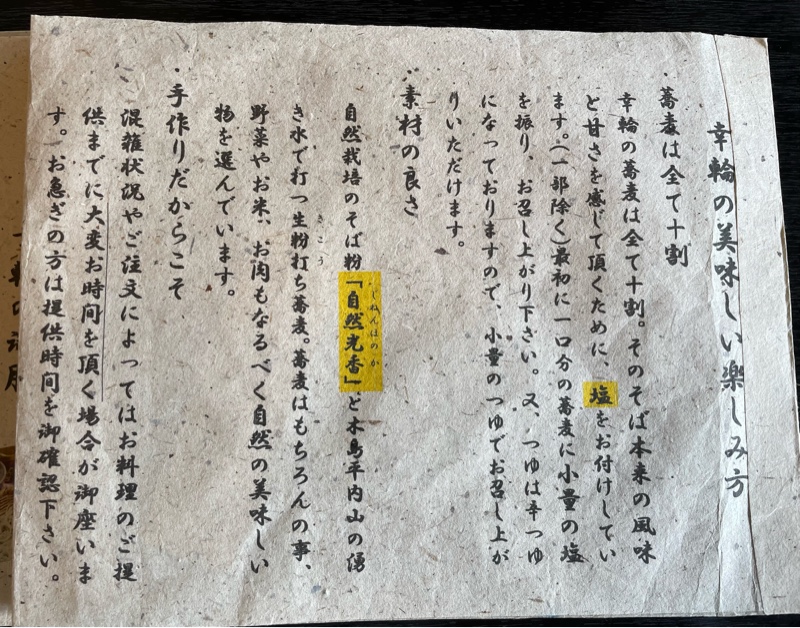 幸輪の美味しい楽しみ方
・蕎麦は全て十割
幸輪の蕎麦は全て十割。そのそば本来の風味
と甘さを感じて頂くために、塩をお付けしてい
ます。(一部除く)最初に一口分の蕎麦に小量の塩
を振り、お召し上がり下さい。又、つゆは辛つゆ
になっておりますので、小量のつゆでお召し上が
りいただけます。
・素材の良さ
自然栽培のそば粉「自然光香」と木島平内山の湧
じねんほのか
き水で打つ生粉打ち蕎麦。蕎麦はもちろんの事、
きこう
野菜やお米、お肉もなるべく自然の美味しい
物を選んでいます。
・手作りだからこそ
混雑状況やご注文によってはお料理のご提
供までに大変お時間を頂く場合が御座いま
す。お急ぎの方は提供時間を御確認下さい。